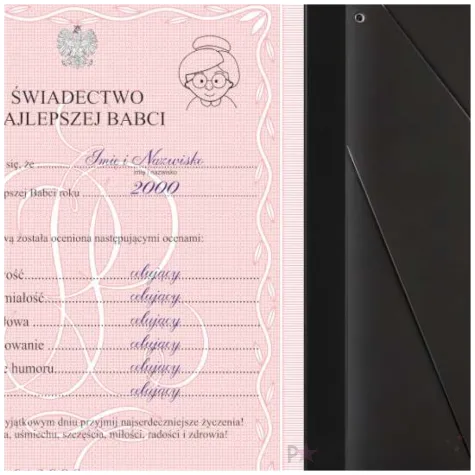 ŚWIADECTWO
AJLEPSZEJ BABCI
się, że Imię i Nazwisko
imię i nazwisko
pszej Babci roku 2000
wą została oceniona następującymi ocenami:
ość celujący
miałość celujący
łowa celujący
owanie celujący
e humoru celujący
celujący
yjątkowym dniu przyjmij najserdeczniejsze życzenia!
a, uśmiechu, szczęścia, miłości, radości i zdrowia!